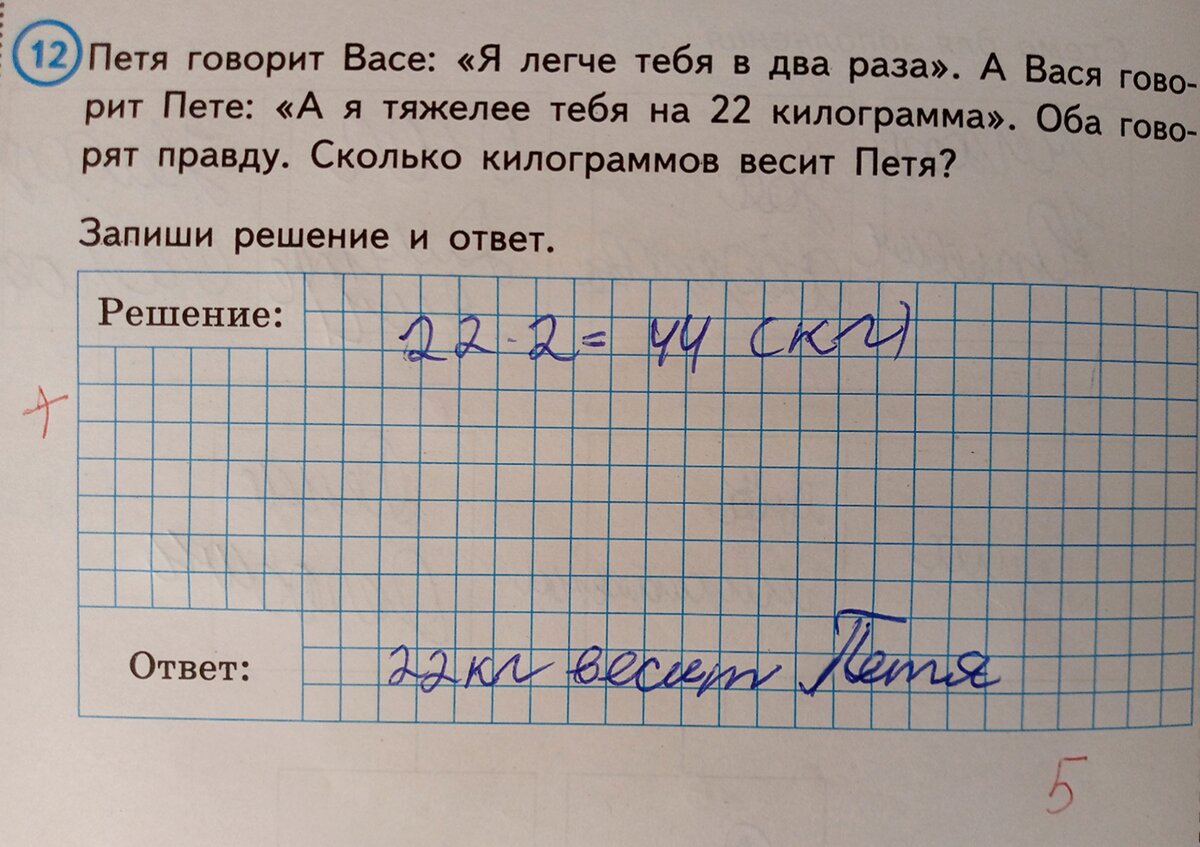 12 Петя говорит Васе: «Я легче тебя в два раза». А Вася гово-
рит Пете: «А я тяжелее тебя на 22 килограмма». Оба гово-
рят правду. Сколько килограммов весит Петя?
Запиши решение и ответ.
Решение: 22 · 2 = 44 (кг)
Ответ: 22кг весит Петя
5